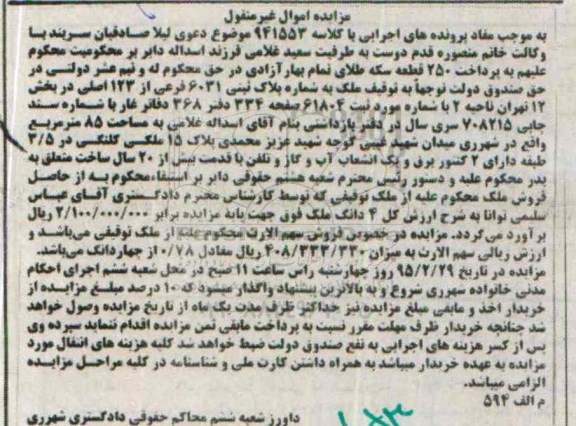 مزایده اموال غیرمنقول
به موجب مفاد پرونده های اجرایی با کلاسه ۹۴۱۵۵۳ موضوع دعوی لیلا صادقیان سربند با
وکالت خانم منصوره قدم دوست به طرفیت سعید غلامی فرزند اسداله دایر بر محکومیت محکوم
علیهم به پرداخت ۲۵۰ قطعه سکه طلای تمام بهار آزادی در حق محکوم له و نیم عشر دولتی در
حق صندوق دولت توجهاً به توقیف ملک به شماره پلاک ثبتی ۶۰۳۱ فرعی از ۱۲۳ اصلی در بخش
۱۲ تهران ناحیه ۲ با شماره مورد ثبت ۶۱۸۰۴ صفحه ۳۳۴ دفتر ۳۶۸ دفاتر غاز با شماره سند
چاپی ۷۰۸۲۱۵ سری سال در دفتر بازداشتی بنام آقای اسداله غلامی به مساحت ۸۵ مترمربع
واقع در شهرری میدان شهید غیبی کوچه شهید عزیز محمدی پلاک ۱۵ ملکی کلنگی در ۳/۵
طبقه دارای ۲ کنتور برق و یک انشعاب آب و گاز و تلفن با قدمت بیش از ۲۰ سال ساخت متعلق به
پدر محکوم علیه و دستور رئیس محترم شعبه هشتم حقوقی دایر بر استیفاء محکوم به از حاصل
فروش ملک محکوم علیه از ملک توقیفی که توسط کارشناس محترم دادگستری آقای عباس
سلیمی توانا به شرح ارزش کل ۴ دانگ ملک فوق جهت پایه مزایده برابر ۲/۱۰۰/۰۰۰/۰۰۰ ریال
برآورد می گردد. مزایده در خصوص فروش سهم الارث محکوم علیه از ملک توقیفی می‌باشد و
ارزش ریالی سهم الارث به میزان ۴۰۸/۳۳۳/۳۳۰ ریال معادل ۰/۷۸ از چهاردانک می‌باشد.
مزایده در تاریخ ۹۵/۲/۲۹ روز چهارشنبه راس ساعت ۱۱ صبح در محل شعبه ششم اجرای احکام
مدنی خانواده شهرری شروع و به بالاترین پیشنهاد واگذار میشود که ۱۰ درصد مبلغ مزایده از
خریدار اخذ و مابقی مبلغ مزایده نیز حداکثر ظرف مدت یک ماه از تاریخ مزایده وصول خواهد
شد چنانچه خریدار ظرف مهلت مقرر نسبت به پرداخت مابقی ثمن مزایده اقدام ننماید سپرده وی
پس از کسر هزینه های اجرایی به نفع صندوق دولت ضبط خواهد شد کلیه هزینه های انتقال مورد
مزایده به عهده خریدار میباشد به همراه داشتن کارت ملی و شناسنامه در کلیه مراحل مزایده
الزامی میباشد.
م الف ۵۹۴
داورز شعبه ششم محاکم حقوقی دادگستری شهرری